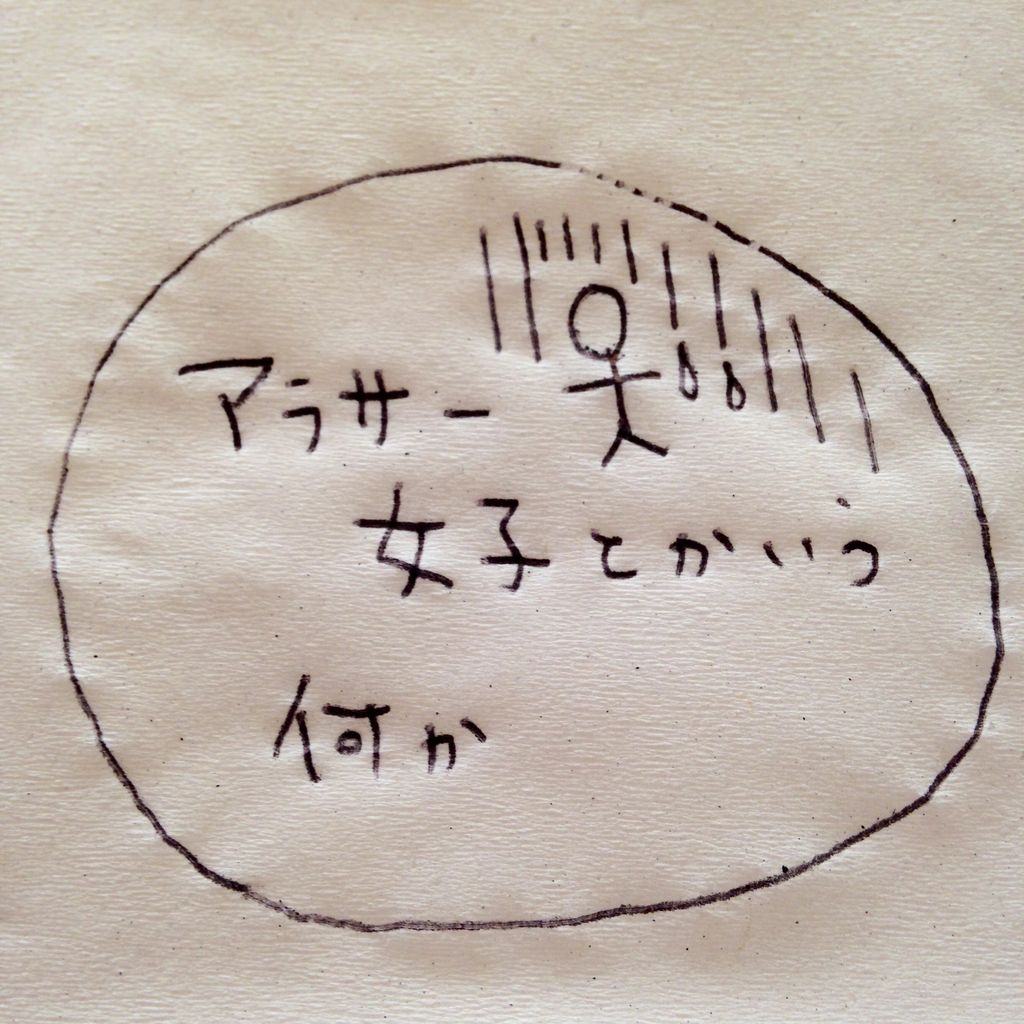 アラサー
女子とかいう
何か